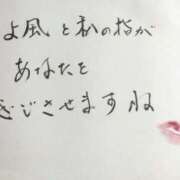 よ風と私の指が
あなたを
ぎさせますね